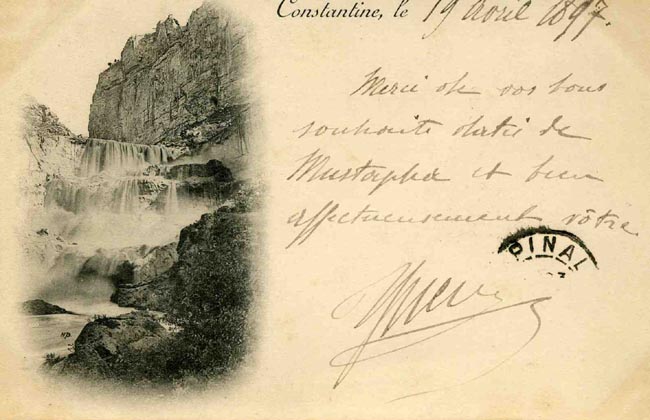 Constantine, le 19 avril 1897.
Merci de vos bons
souhaits datés de
Mustapha et bien
affectueusement vôtre
PINAL